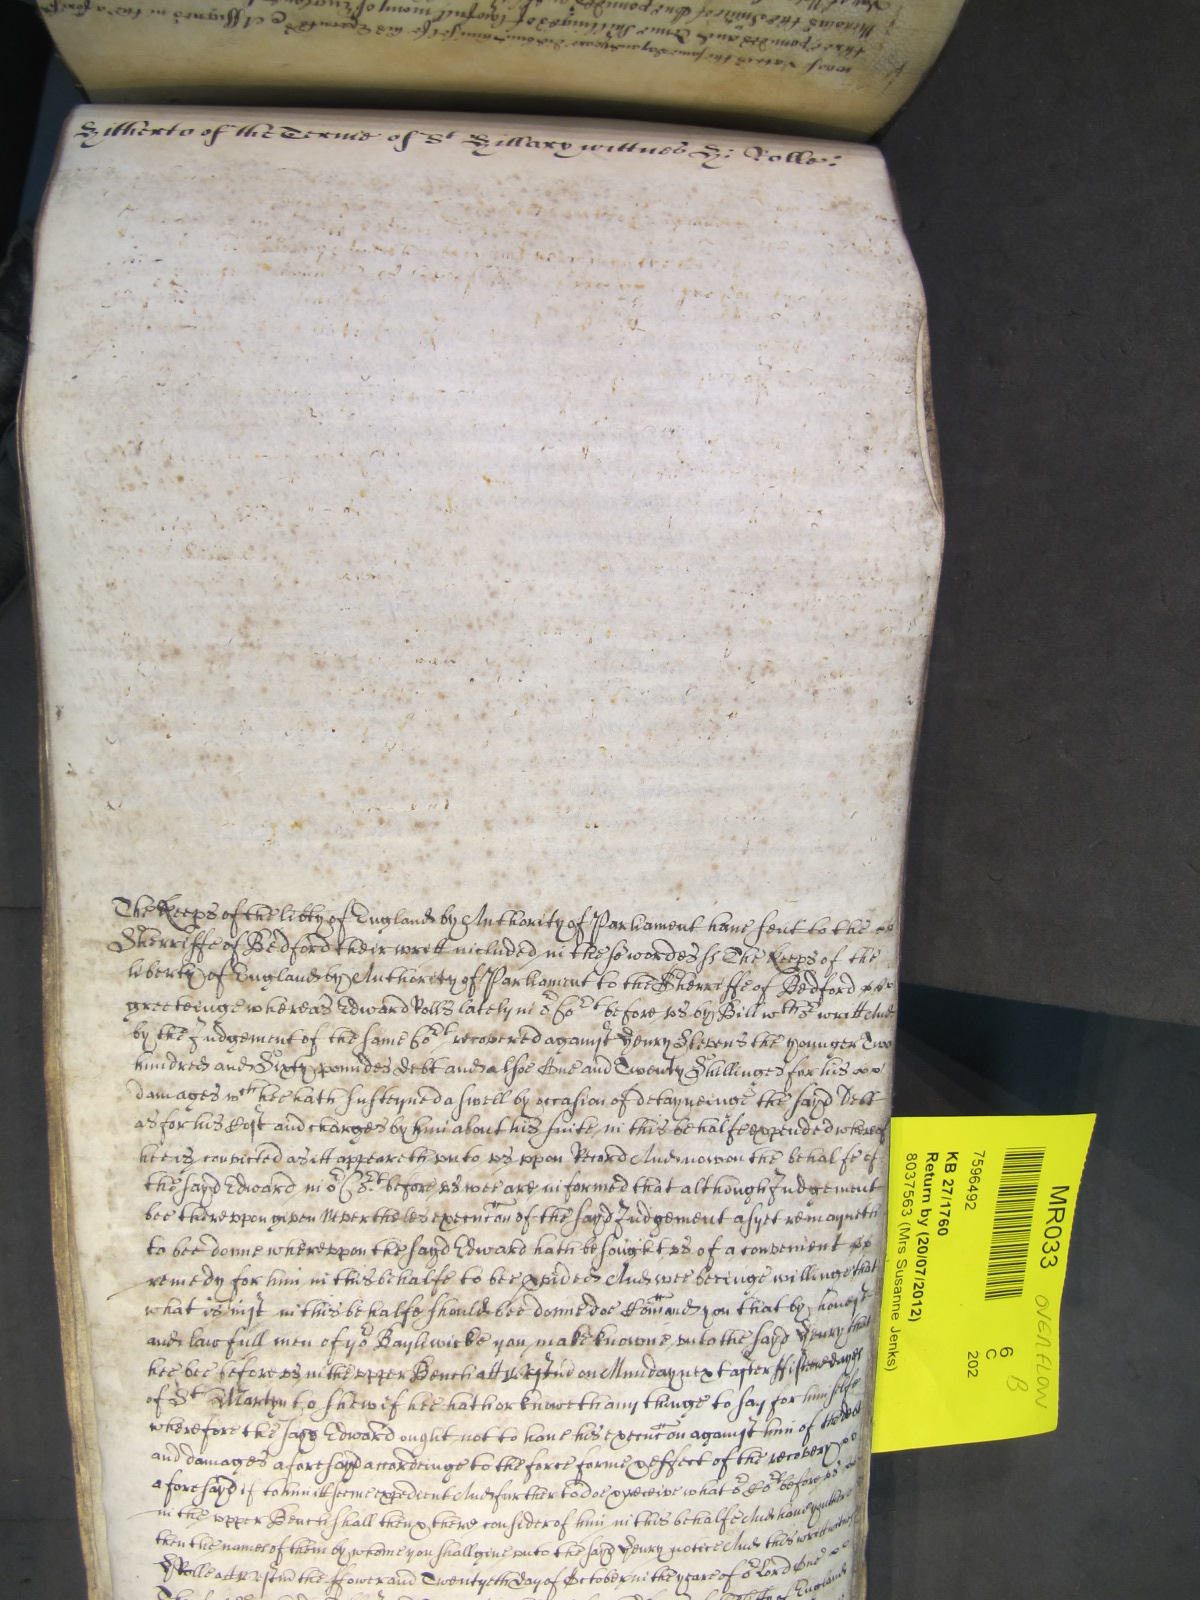 Hitherto of the Terme of St Hillary wittnes H: Rolle:
The Keeps of the libty of England by Authority of Parliament have sent to the
Sherriffe of Bedford their writt included in these wordes ss The Keeps of the
liberty of England by Authority of Parliament to the Sherriffe of Bedford
greeteinge whereas Edward Rolls lately in or Cort before us by Bill wthout writt And
by the Judgement of the same Cort recovered against Henry Stevens the younger Two
hundred and Sixty poundes debt and alsoe One and Twenty Shillinges for his
damages wch hee hath susteyned aswell by occasion of detayneinge the sayd Debt
as for his Cost and charges by him about his suite in this behalfe expended whereof
hee is convicted as itt appeareth unto us uppon Record And now on the behalfe of
the sayd Edward in or Cort before us wee are informed that although Judgement
bee thereuppon given Nevertheles execucon of the sayd Judgement as yet remayneth
to bee donne whereuppon the sayd Edward hath besought us of a convenient
remedy for him in this behalfe to bee pvided And wee beeinge willinge that
what is iust in this behalfe should bee donne doe Comand you that by honest
and lawfull men of yor Bayliwicke you make knowne unto the sayd Henry that
hee bee before us in the upper Bench att Westmr on Munday next after ffifteene dayes
of St Martyn to shew if hee hath or knoweth any thinge to say for himselfe
wherefore the sayd Edward ought not to have his execucon against him of the debt
and damages aforesayd accordeinge to the force forme & effect of the recovery
aforesayd if to him itt seeme expedient And further to doe & receive what or Cort before us
in the upper Bench shall then & there consider of him in this behalfe And have you there
then the names of them by whome you shall give unto the sayd Henry notice And this writt witnes
H Rolle att Westmr the ffower and Twentyeth day of October in the yeare of or Lord One
of England
MR033
OVERFLOW
B
6
C
202
7596492
KB 27/1760
Return by (20/07/2012)
8037563 (Mrs Susanne Jenks)